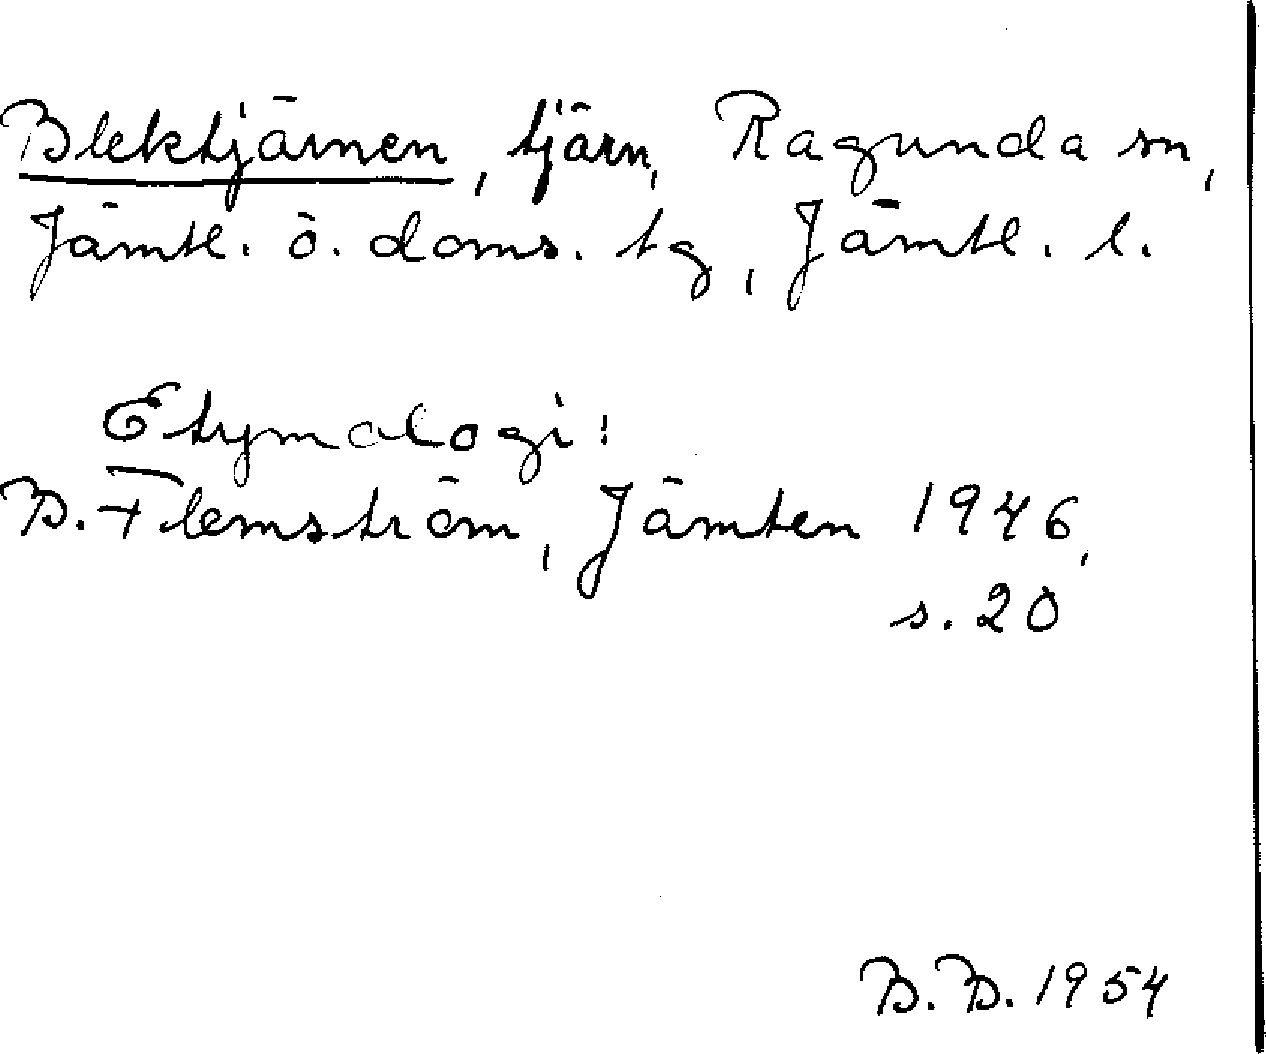 Blektjärnen, tjärn, Ragunda sn,
Jämtl. ö. doms. tg, Jämtl. l.
Etymologi:
B. Flemström, Jämten 1946,
s. 20
B.B. 1954